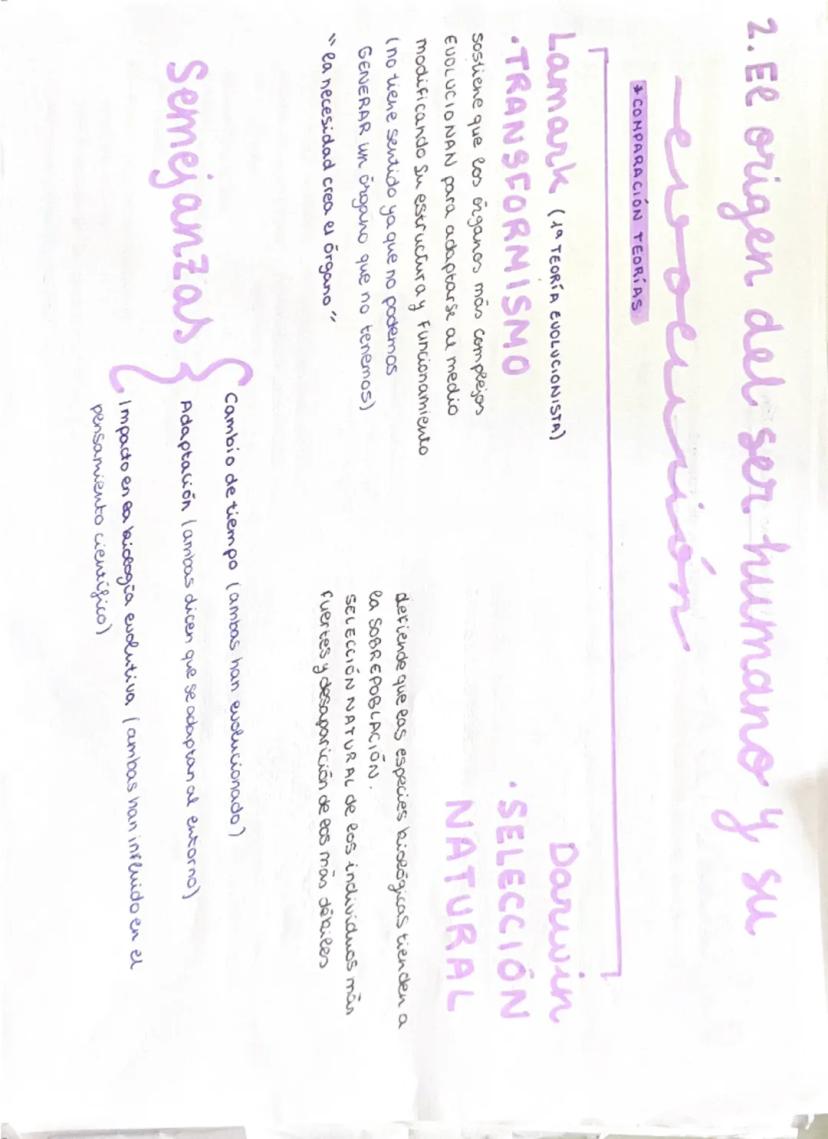 2. El origen del ser humano y su
evolución
* COMPARACIÓN TEORÍAS
Lamark (1ª TEORÍA EVOLUCIONISTA)
· TRANSFORMISMO
sostiene que los órganos más complejos
EVOLUCIONAN para adaptarse al medio
modificando su estructura y funcionamiento
(no tiene sentido ya que no podemos
GENERAR un órgano que no tenemos)
"la necesidad crea el órgano"
Darwin
· SELECCIÓN
NATURAL
defiende que las especies biológicas tienden a
la SOBREPOBLACIÓN.
SELECCIÓN NATURAL de los individuos más
fuertes y desaparición de los más débiles
Semejanzas
Cambio de tiempo (ambas han evolucionado)
Adaptación (ambas dicen que se adaptan al entorno)
Impacto en la biología evolutiva (ambas han influido en el
pensamiento científico)